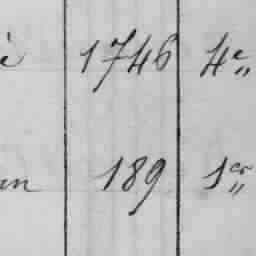 è 1746 4e„
an 189 1er„